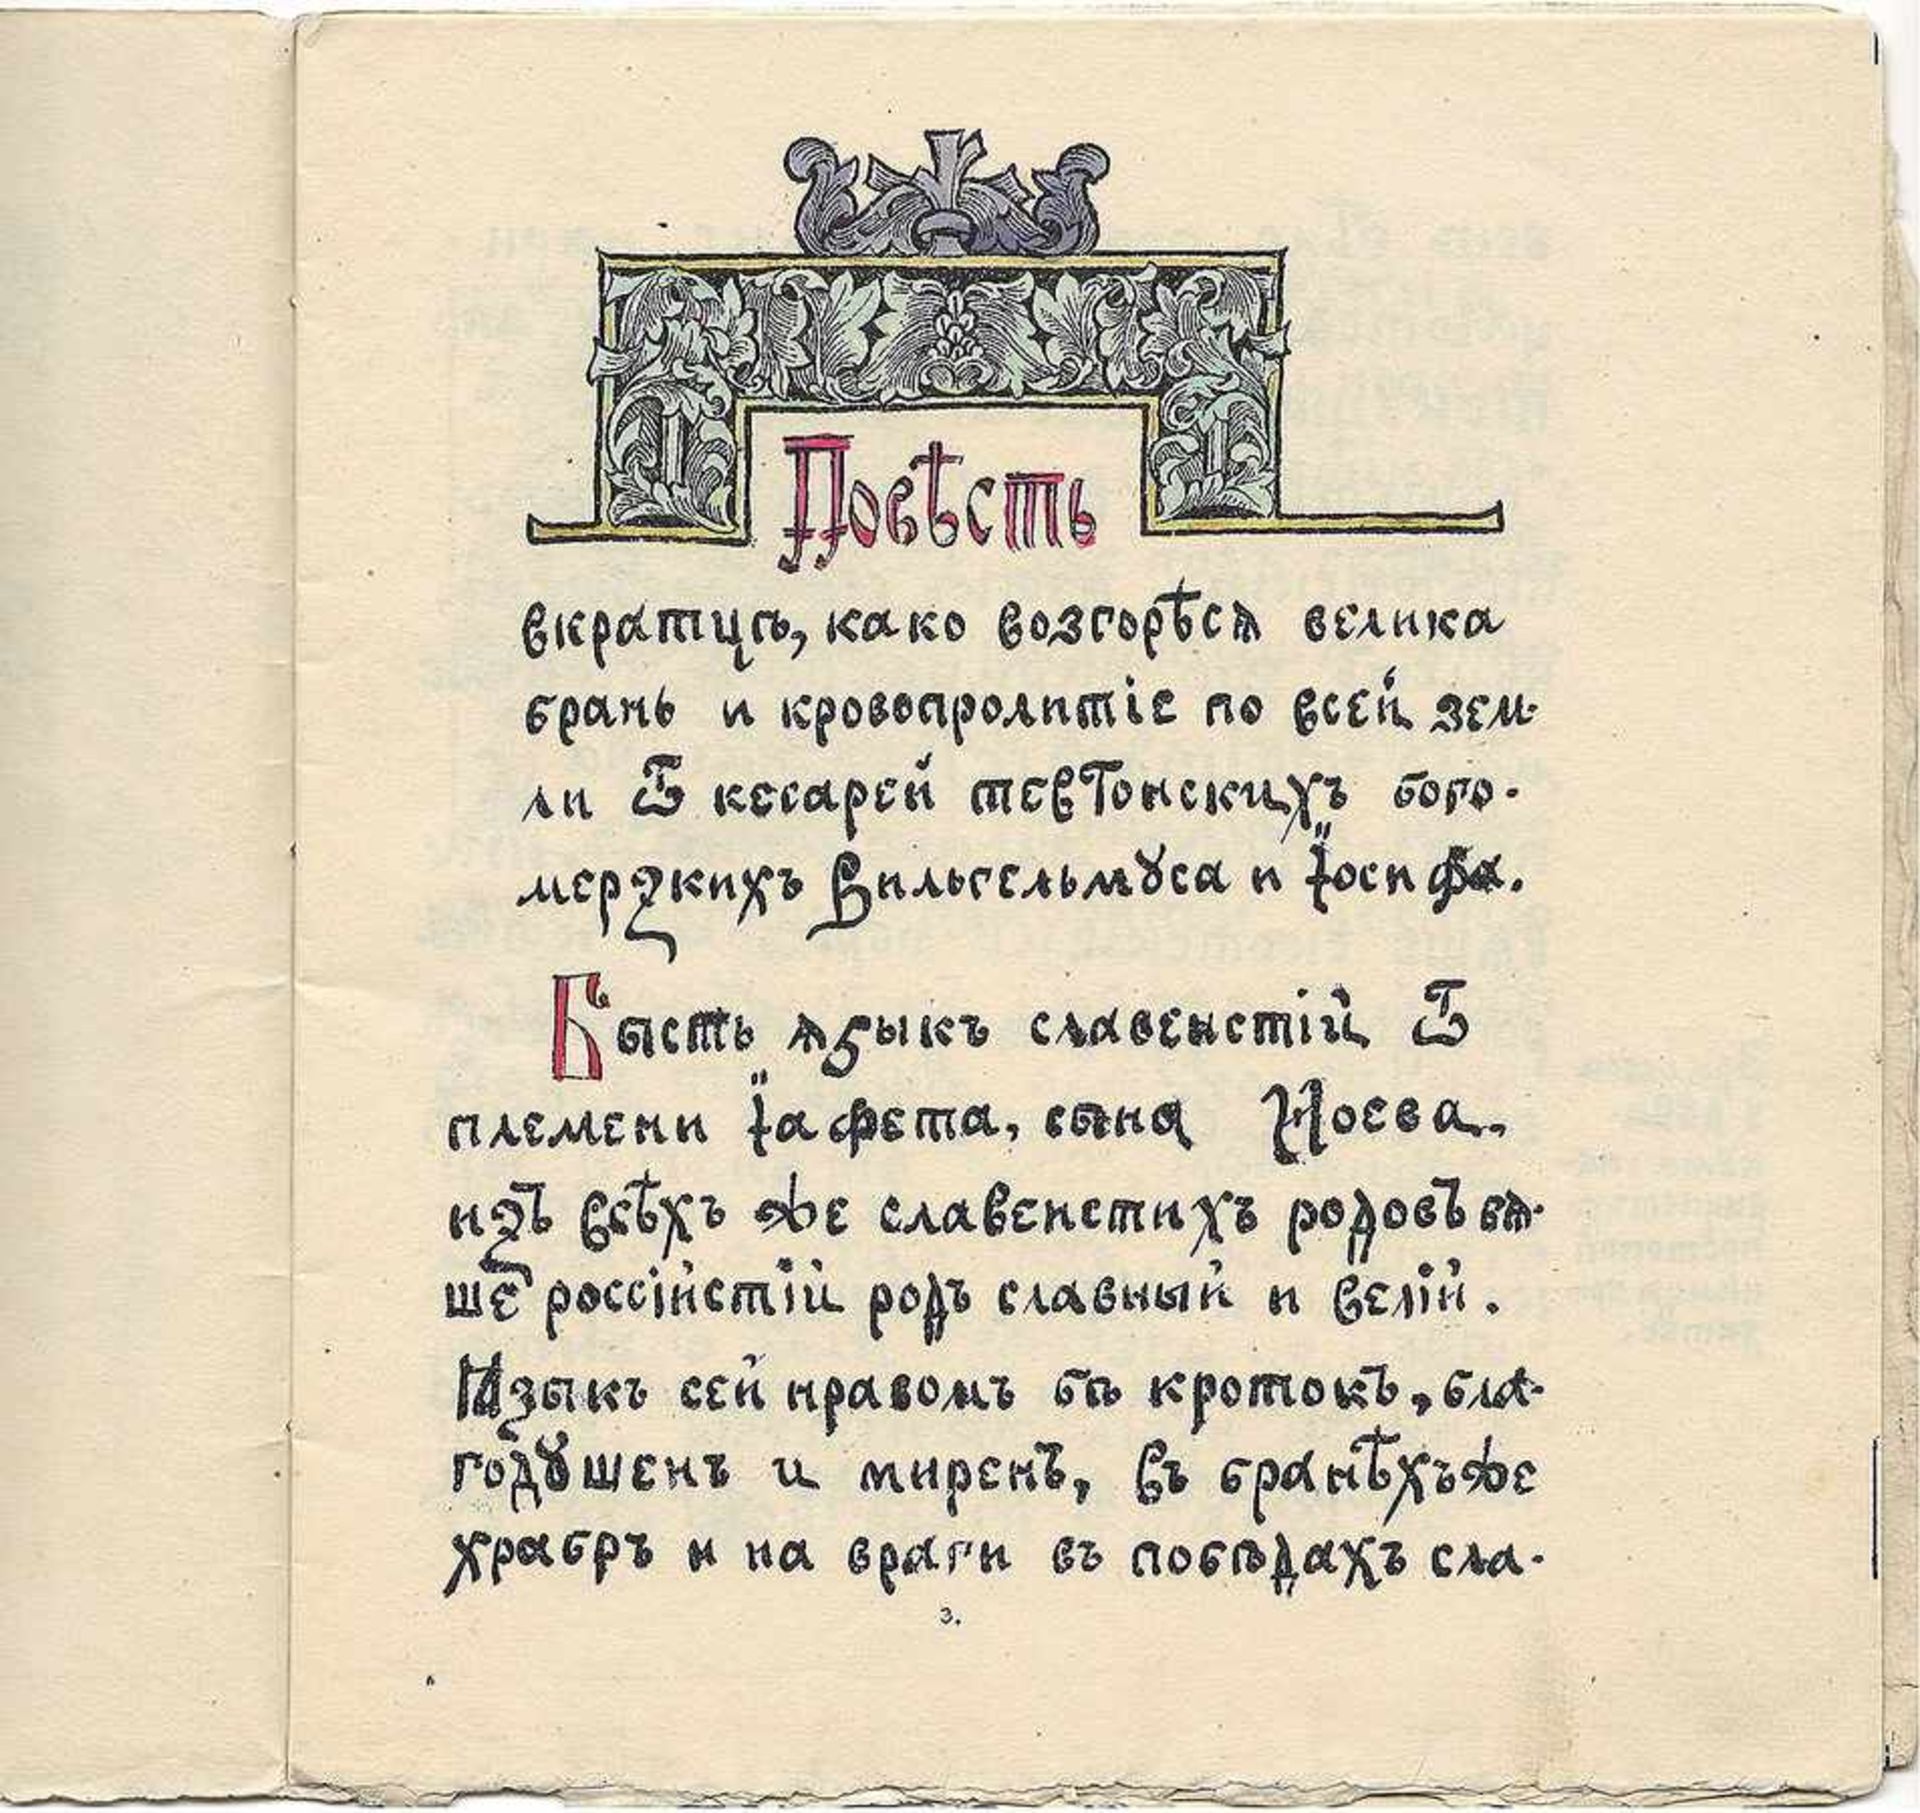 Повѣсть
вкратцѣ, како возгорѣся велика
брань и кровопролитіе по всей зем-
ли ѿ кесарей тевтонскихъ бого-
мерзкихъ Вильгельмуса и Іосифа.
Бысть языкъ славенстій ѿ
племени Іафета, сына Ноева.
изъ всѣхъ же славенстихъ родовъ бя-
ше россійстій родъ славный и велій.
Языкъ сей нравомъ бѣ кротокъ, бла-
годушенъ и миренъ, въ бранѣхъ же
храбръ и на враги въ побѣдахъ сла-
3.